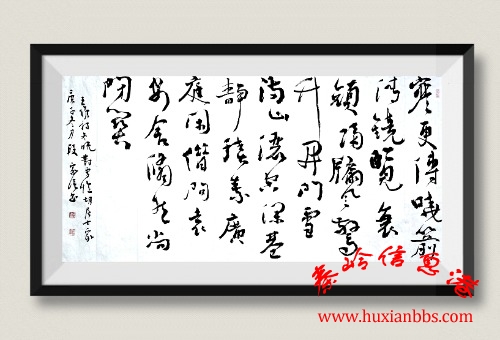 寒更傳曉箭
清鏡覽衰
顏隔牖風驚
竹開門雪
滿山灑空深巷
靜積素廣
庭閑借問袁
安舍翛然尚
閉關
王維詩冬晚對雪憶胡居士家
秦岭信息港
www.huxianbbs.com